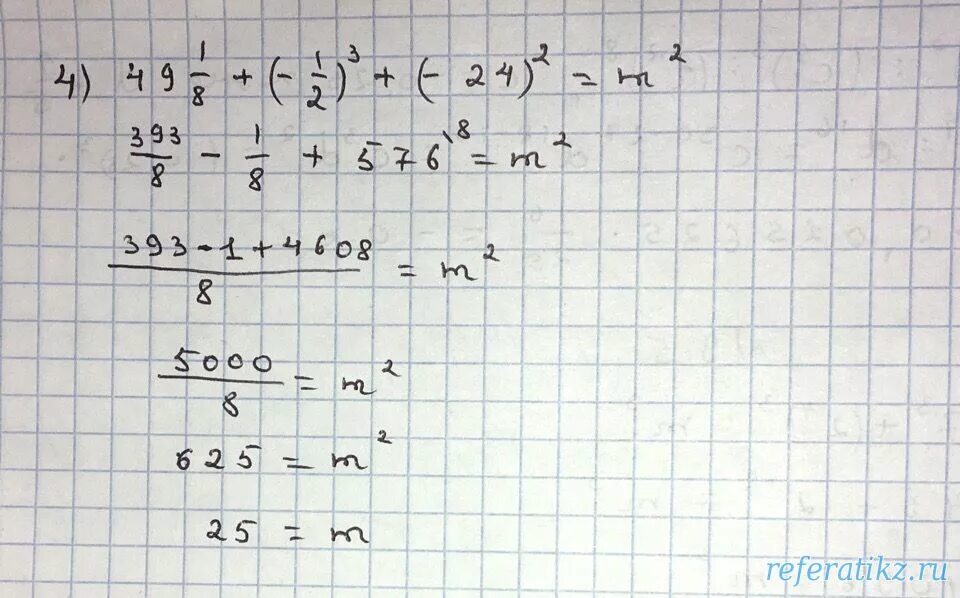 4) 49 1/8 + (- 1/2)³ + (- 24)² = m²
393/8 - 1/8 + 576‵⁸ = m²
(393 - 1 + 4608)/8 = m²
5000/8 = m²
625 = m²
25 = m
referatikz.ru